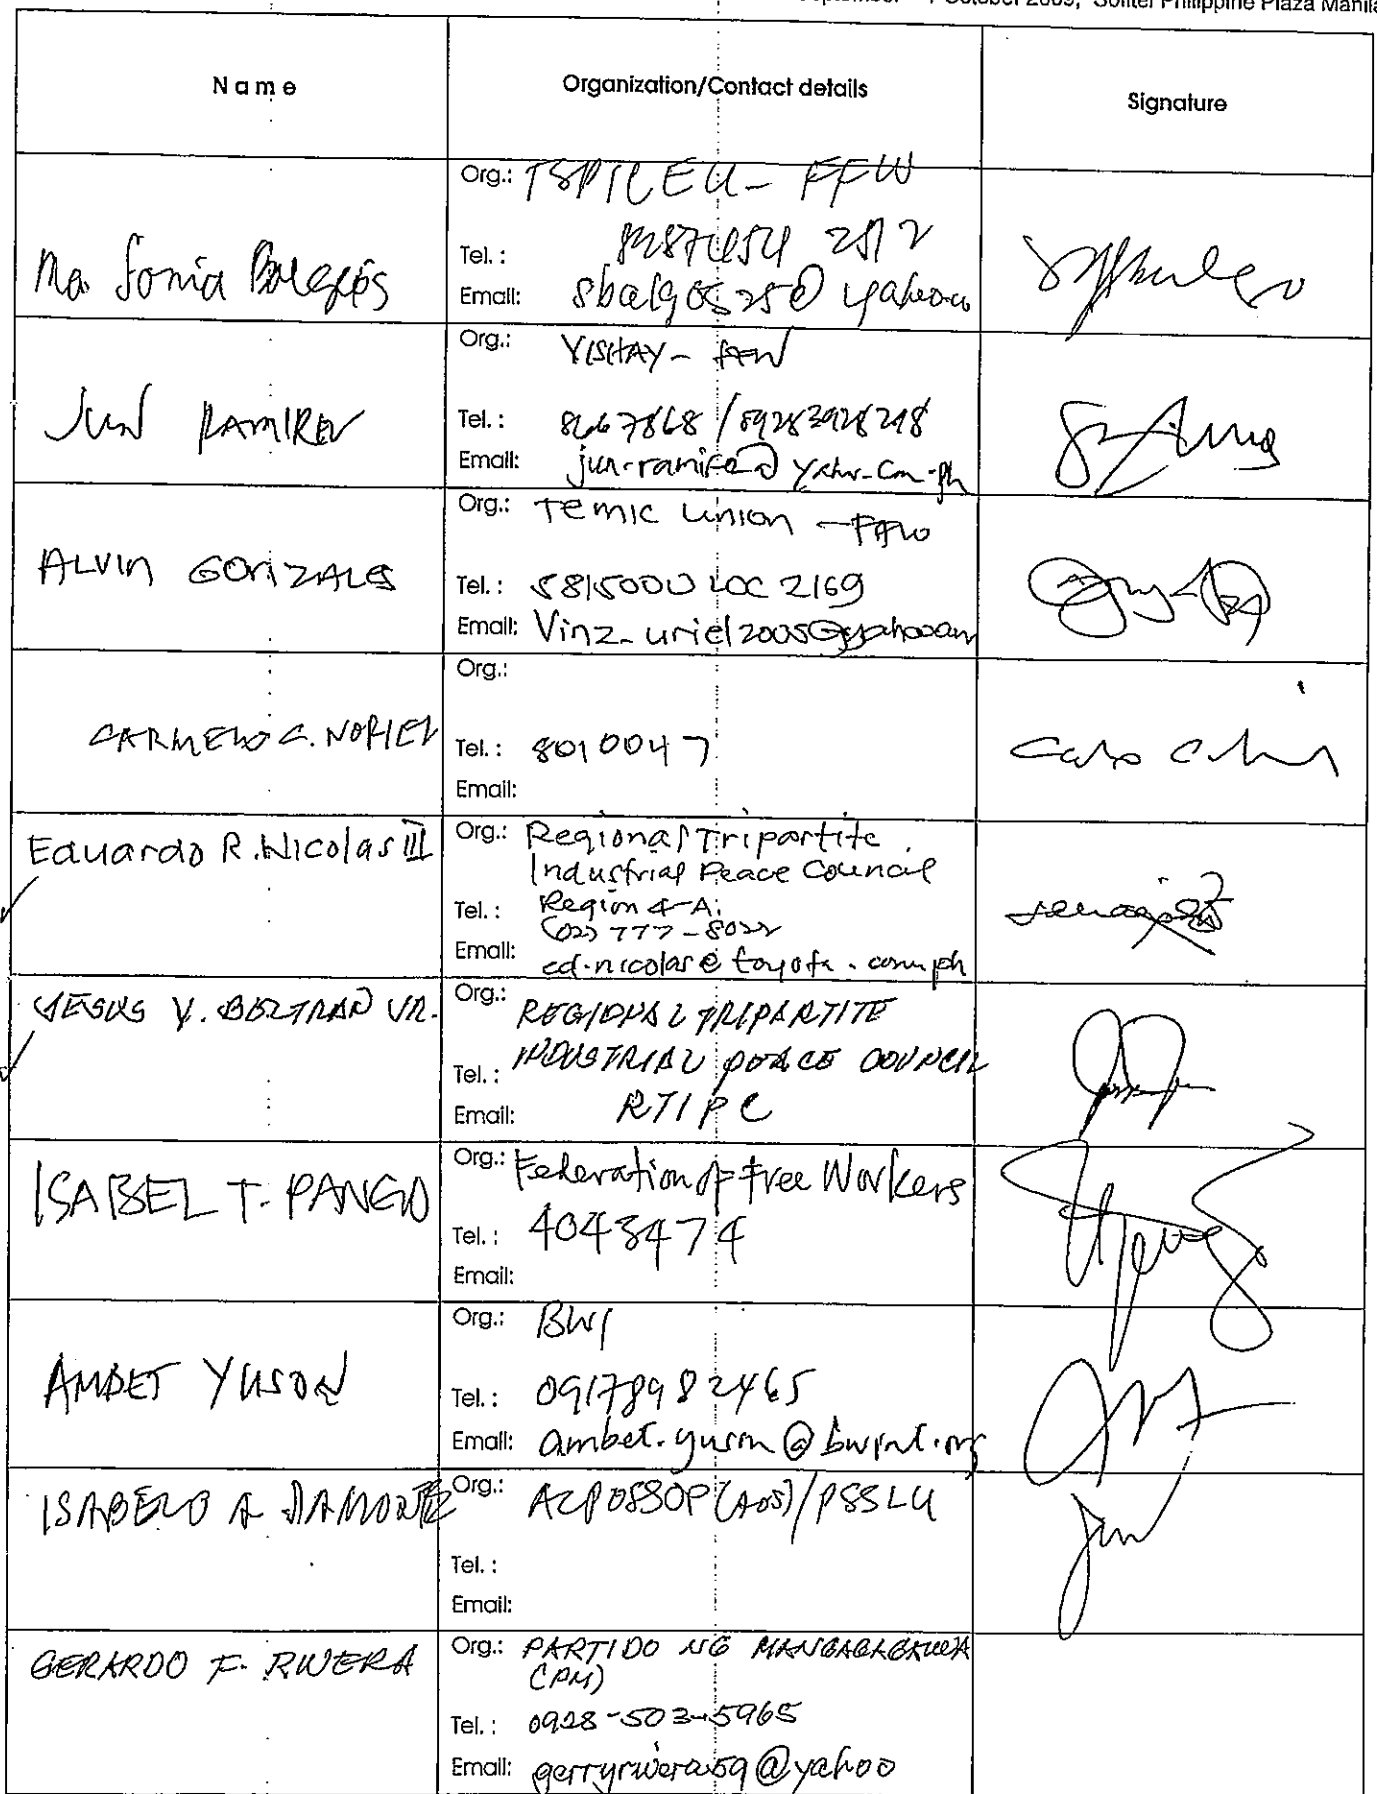 October 2009, Sofitel Philippine Plaza Manila
Name
Organization/Contact details
Signature
Ma. Sonia Balagos
Org.: TSPICEU - FFW
Tel.: 2512
Email:
Org.: VISHAY - FFW
JUN RAMIREZ
Tel.: 8667868 / 09283928298
Email:
Org.: Temic Union - FFW
ALVIN GONZALES
Tel.: 5815000 LOC 2169
Email: Vinz_uriel2005@yahoo.com
Org.:
CARMELO C. NORIEL
Tel.: 8010047
Email:
Eduardo R. Nicolas III
Org.: Regional Tripartite
Industrial Peace Council
Tel.: Region 4-A
(02) 777-8022
Email: ed.nicolas@toyota.com.ph
JESUS Y. BELTRAN JR.
Org.: REGIONAL TRIPARTITE
Tel.: INDUSTRIAL PEACE COUNCIL
Email: RTIPC
ISABEL T. PANGO
Org.: Federation of Free Workers
Tel.: 4048474
Email:
Org.: BWI
AMBET YUSON
Tel.: 09178982465
Email: ambet.yuson@bwint.org
ISABELO A. DAMONTE
Org.: /PSSLU
Tel.:
Email:
GERARDO F. RIVERA
Org.: PARTIDO NG MANGGAGAWA
(PM)
Tel.: 0928-503-5965
Email: gerryrivera59@yahoo